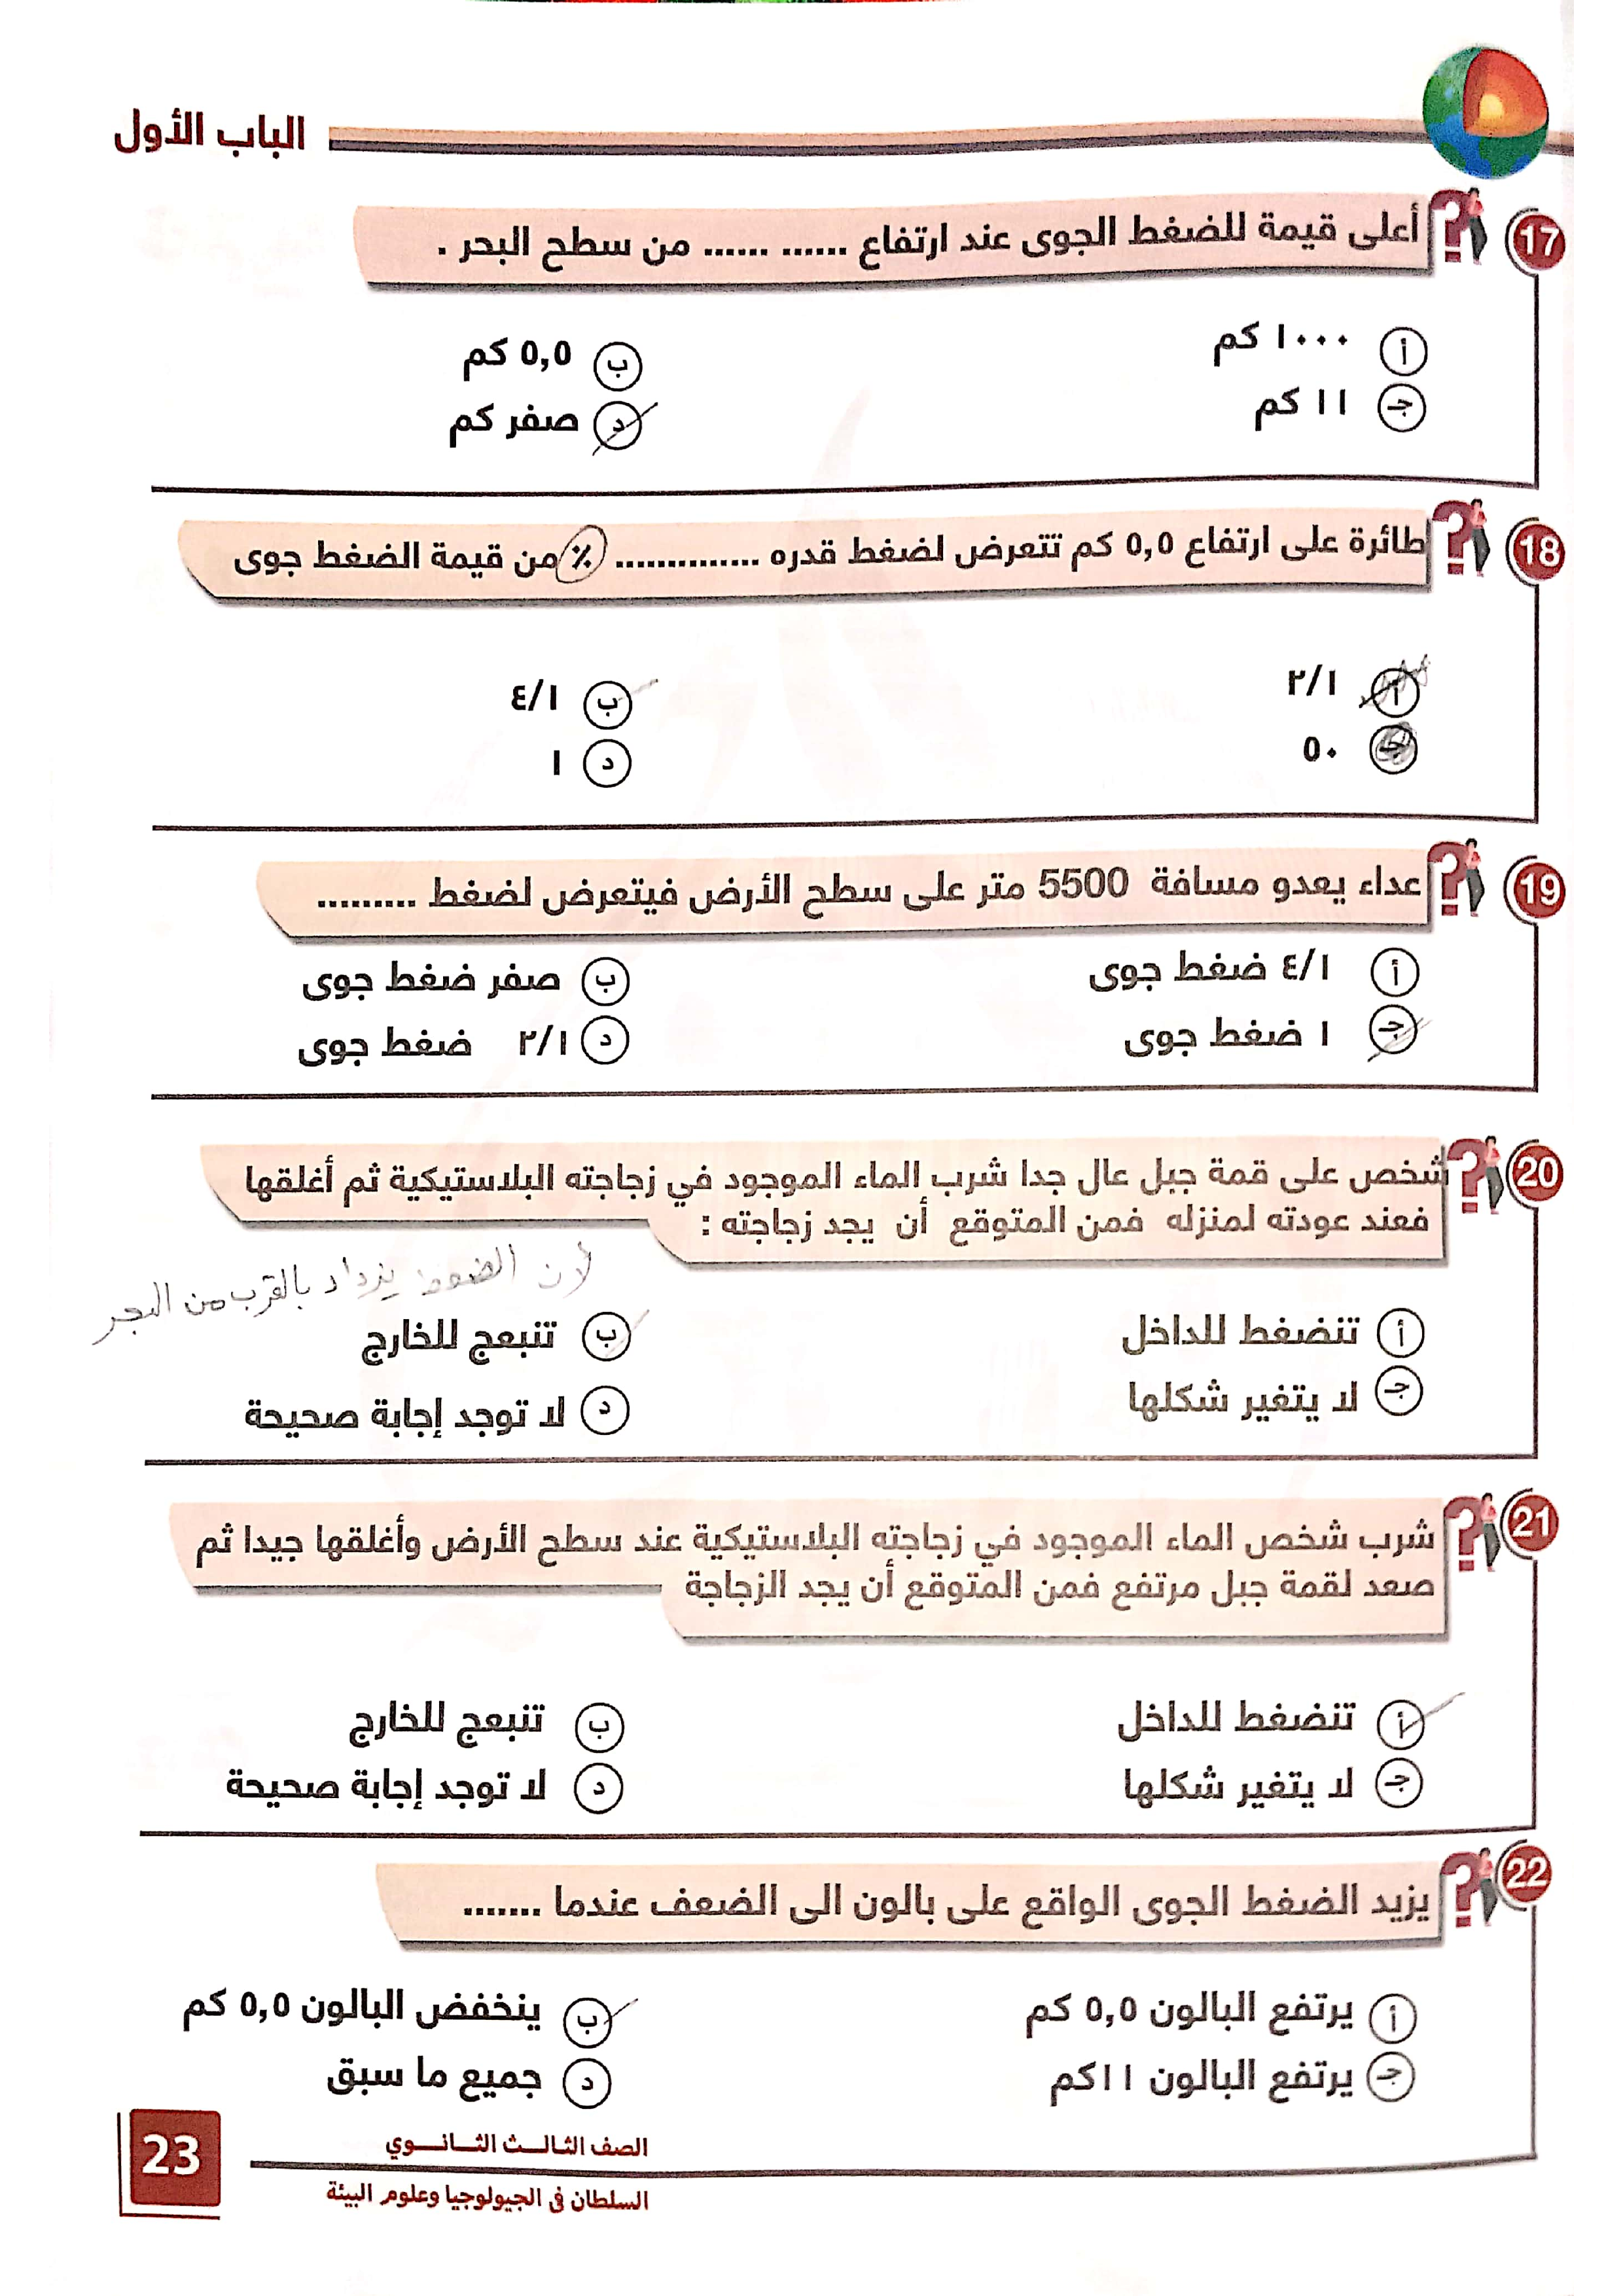 الباب الأول
17 أعلى قيمة للضغط الجوى عند ارتفاع ...... ...... من سطح البحر .
أ ١٠٠٠ كم
ب ٥,٥ كم
جـ ١١ كم
د صفر كم
18 طائرة على ارتفاع ٥,٥ كم تتعرض لضغط قدره .............. ٪ من قيمة الضغط جوى
أ ٢/١
ب ٤/١
جـ ٥٠
د ١
19 عداء يعدو مسافة 5500 متر على سطح الأرض فيتعرض لضغط .........
أ ٤/١ ضغط جوى
ب صفر ضغط جوى
جـ ١ ضغط جوى
د ٢/١ ضغط جوى
20 شخص على قمة جبل عال جدا شرب الماء الموجود في زجاجته البلاستيكية ثم أغلقها
فعند عودته لمنزله فمن المتوقع أن يجد زجاجته :
لان الضغط يزداد بالقرب من البحر
أ تنضغط للداخل
ب تنبعج للخارج
جـ لا يتغير شكلها
د لا توجد إجابة صحيحة
21 شرب شخص الماء الموجود في زجاجته البلاستيكية عند سطح الأرض وأغلقها جيدا ثم
صعد لقمة جبل مرتفع فمن المتوقع أن يجد الزجاجة
أ تنضغط للداخل
ب تنبعج للخارج
جـ لا يتغير شكلها
د لا توجد إجابة صحيحة
22 يزيد الضغط الجوى الواقع على بالون الى الضعف عندما .......
أ يرتفع البالون ٥,٥ كم
ب ينخفض البالون ٥,٥ كم
جـ يرتفع البالون ١١كم
د جميع ما سبق
23
الصف الثالث الثانوي
السلطان فى الجيولوجيا وعلوم البيئة